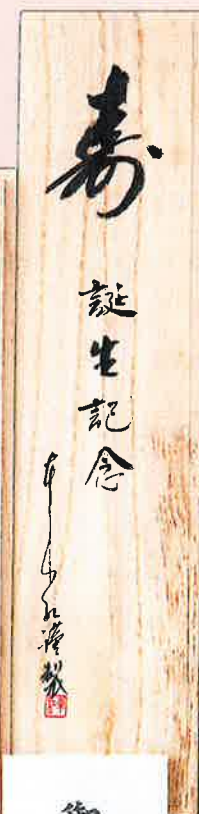 寿
誕生記念
謹製